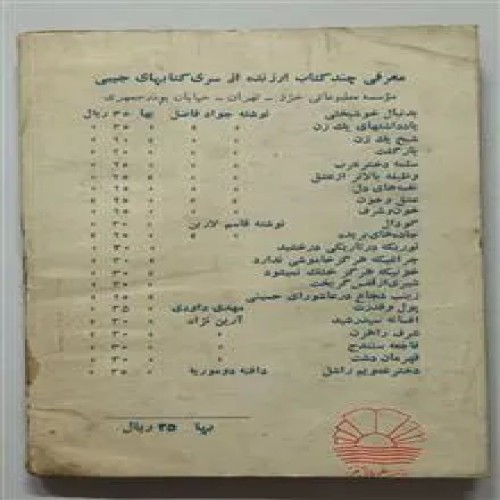 معرفی چند کتاب ارزنده از سری کتابهای جیبی
مؤسسه مطبوعاتی خزر - تهران - خیابان بوذرجمهری
بدنبال خوشبختی نوشته جواد فاضل بها ۳۰ ریال
یادداشتهای یک زن » » » ۳۵ »
شبح یک زن » » » ۲۰ »
بازگشت » » » ۲۰ »
سلمه دختر عرب » » » ۲۵ »
وظیفه بالاتر از عشق » » » ۲۵ »
نغمه‌های دل » » » ۲۵ »
عشق و خون » » » ۲۵ »
خون و شرف » » » ۲۵ »
گودال نوشته قاسم لاربن » ۳۰ »
جاده‌های بریده » » » ۲۵ »
نوریکه در تاریکی درخشید » ۳۰ »
چراغیکه هرگز خاموشی ندارد » ۳۰ »
خونیکه هرگز خشک نمیشود » ۳۰ »
شیری از قفس گریخت » ۳۰ »
زینب شجاع در عاشورای حسینی » ۲۵ »
پول و قدرت مهدی داودی » ۳۵ »
افسانه سپیدرشید آرین نژاد » ۳۰ »
شرف راهزن » » ۳۰ »
فاجعه سنندج » » ۳۰ »
قهرمان دشت » » ۳۰ »
دختر عمویم راشل دافنه دوموریه » ۳۵ »
بها ۳۵ ریال